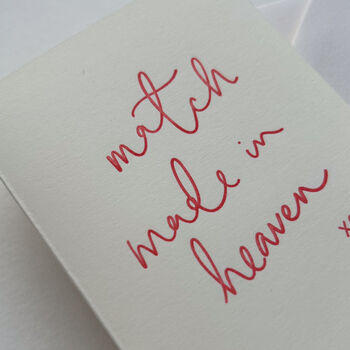 match
made in
heaven
x